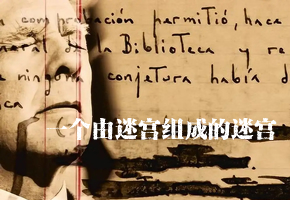 comprobación permitió, hace
general de la Biblioteca y re
ninguna conjetura había d
一个由迷宫组成的迷宫